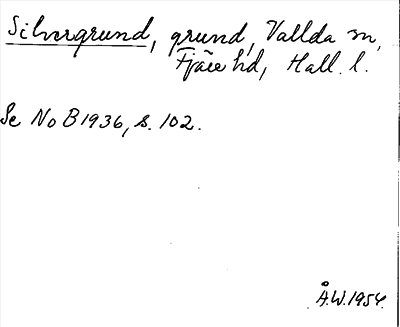 Silvergrund, grund, Vallda sn,
Fjäre hd, Hall. l.
Se NoB 1936, s. 102.
Å.W. 1954.